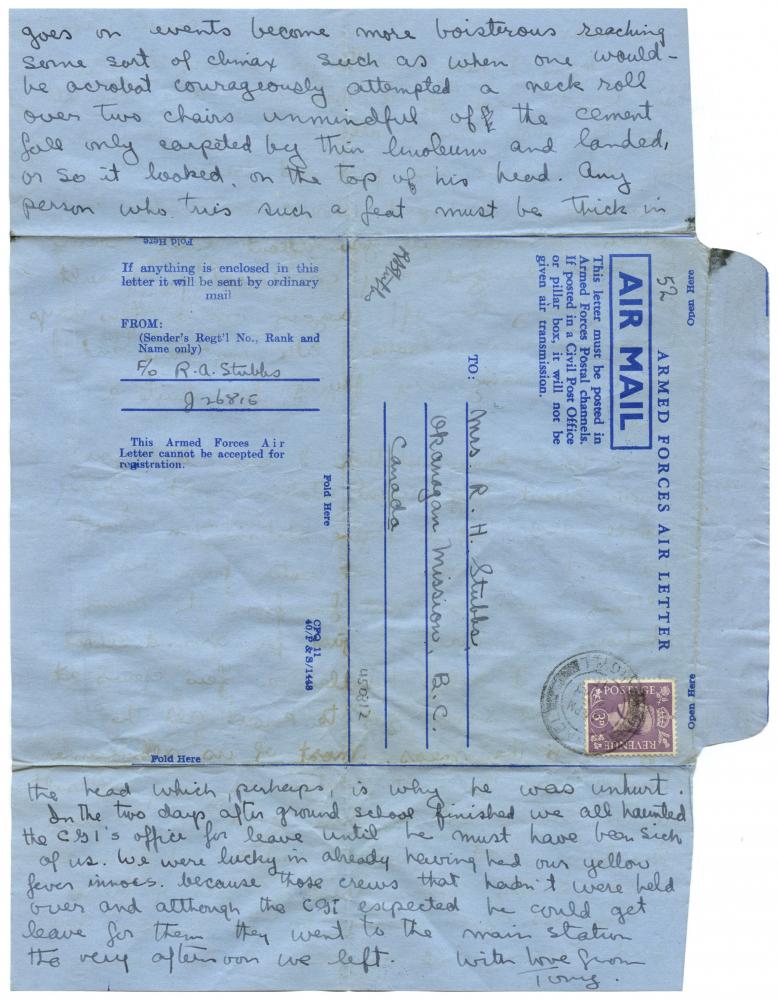 goes on events become more boisterous reaching
some sort of climax such as when one would-
be acrobat courageously attempted a neck roll
over two chairs unmindful of the cement
fall only carpeted by thin linoleum and landed,
or so it looked, on the top of his head. Any
person who tries such a feat must be thick in
Fold Here
If anything is enclosed in this
letter it will be sent by ordinary
mail
FROM:
(Sender's Regt'l No., Rank and
Name only)
F/O R.A. Stubbs
J26815
This Armed Forces Air
Letter cannot be accepted for
registration.
Fold Here
CFQ 11
40/P & S/1448
Fold Here
Open Here
52
ARMED FORCES AIR LETTER
AIR MAIL
This letter must be posted in
Armed Forces Postal channels.
If posted in a Civil Post Office
or pillar box, it will not be
given air transmission.
RAStubbs
TO:
Mrs. R. H. Stubbs,
Okanagan Mission, B.C.
Canada
Open Here
POSTAGE
3D
REVENUE
the head which, perhaps, is why he was unhurt.
In the two days after ground school finished we all haunted
the CGI's office for leave until he must have been sick
of us. We were lucky in already having had our yellow
fever innocs. because those crews that hadn't were held
over and although the CGI expected he could get
leave for them they went to the main station
the very afternoon we left. With love from
Tony.